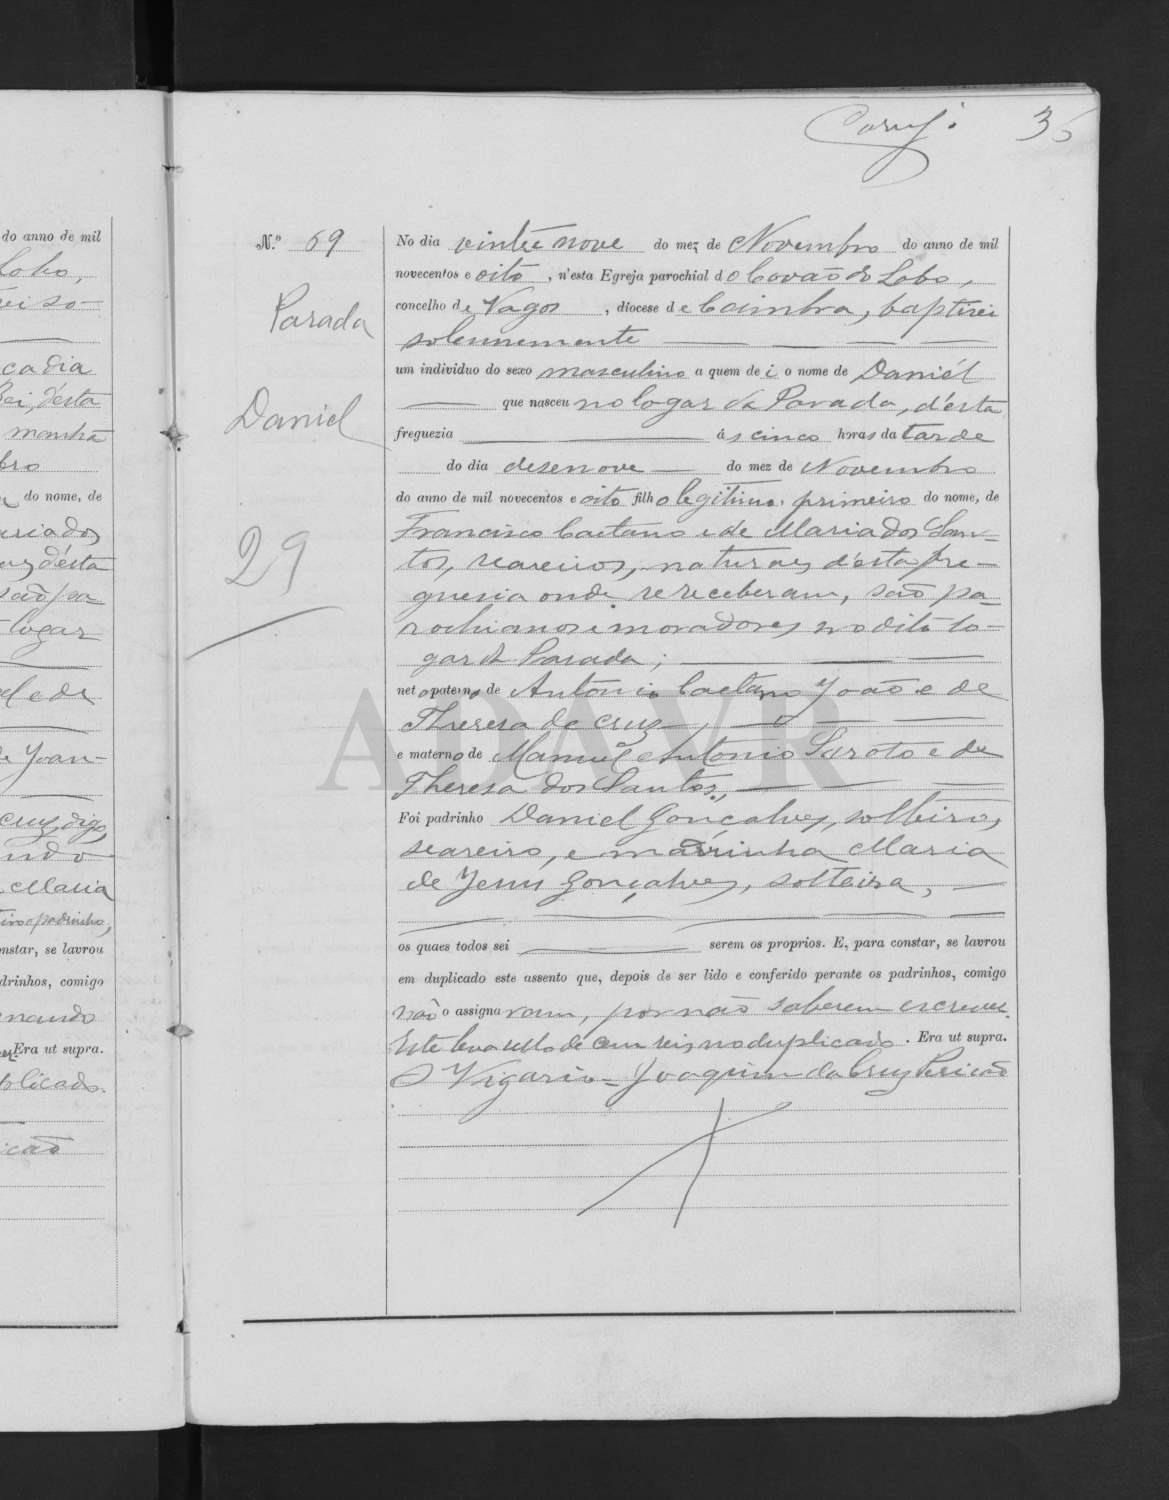 do anno de mil
Lobo,
ça dia
d'ésta
manhã
bro
do nome, de
d'ésta
logar
de Joan-
cruz, digo,
Maria
o padrinho,
onstar, se lavrou
adrinhos, comigo
Era ut supra.
plicado.
35
N.º 69
Parada
Daniel
29
No dia vinte e nove do mez de Novembro do anno de mil
novecentos e oito, n'esta Egreja parochial do Covão do Lobo,
concelho de Vagos, diocese de Coimbra, baptisei
solennemente
um individuo do sexo masculino a quem dei o nome de Daniél
que nasceu no logar da Parada, d'ésta
freguezia ás cinco horas da tarde
do dia desenove do mez de Novembro
do anno de mil novecentos e oito filho legitimo, primeiro do nome, de
Francisco Caetano e de Maria dos San-
tos, seareiros, naturaes d'ésta fre-
guesia onde se receberam, são pa-
rochianos e moradores no dito lo-
gar da Parada;
neto paterno de Antonio Caetano João e de
Theresa da Cruz
e materno de Manuel Antonio Saroto e de
Theresa dos Santos,
Foi padrinho Daniel Gonçalves, solteiro,
seareiro, e madrinha Maria
de Jesus Gonçalves, solteira,
os quaes todos sei serem os proprios. E, para constar, se lavrou
em duplicado este assento que, depois de ser lido e conferido perante os padrinhos, comigo
não o assignaram, por não saberem escrever.
Este leva sello de cem reis no duplicado. Era ut supra.
O Vigario = Joaquim da Cruz Pericão
ADAVR